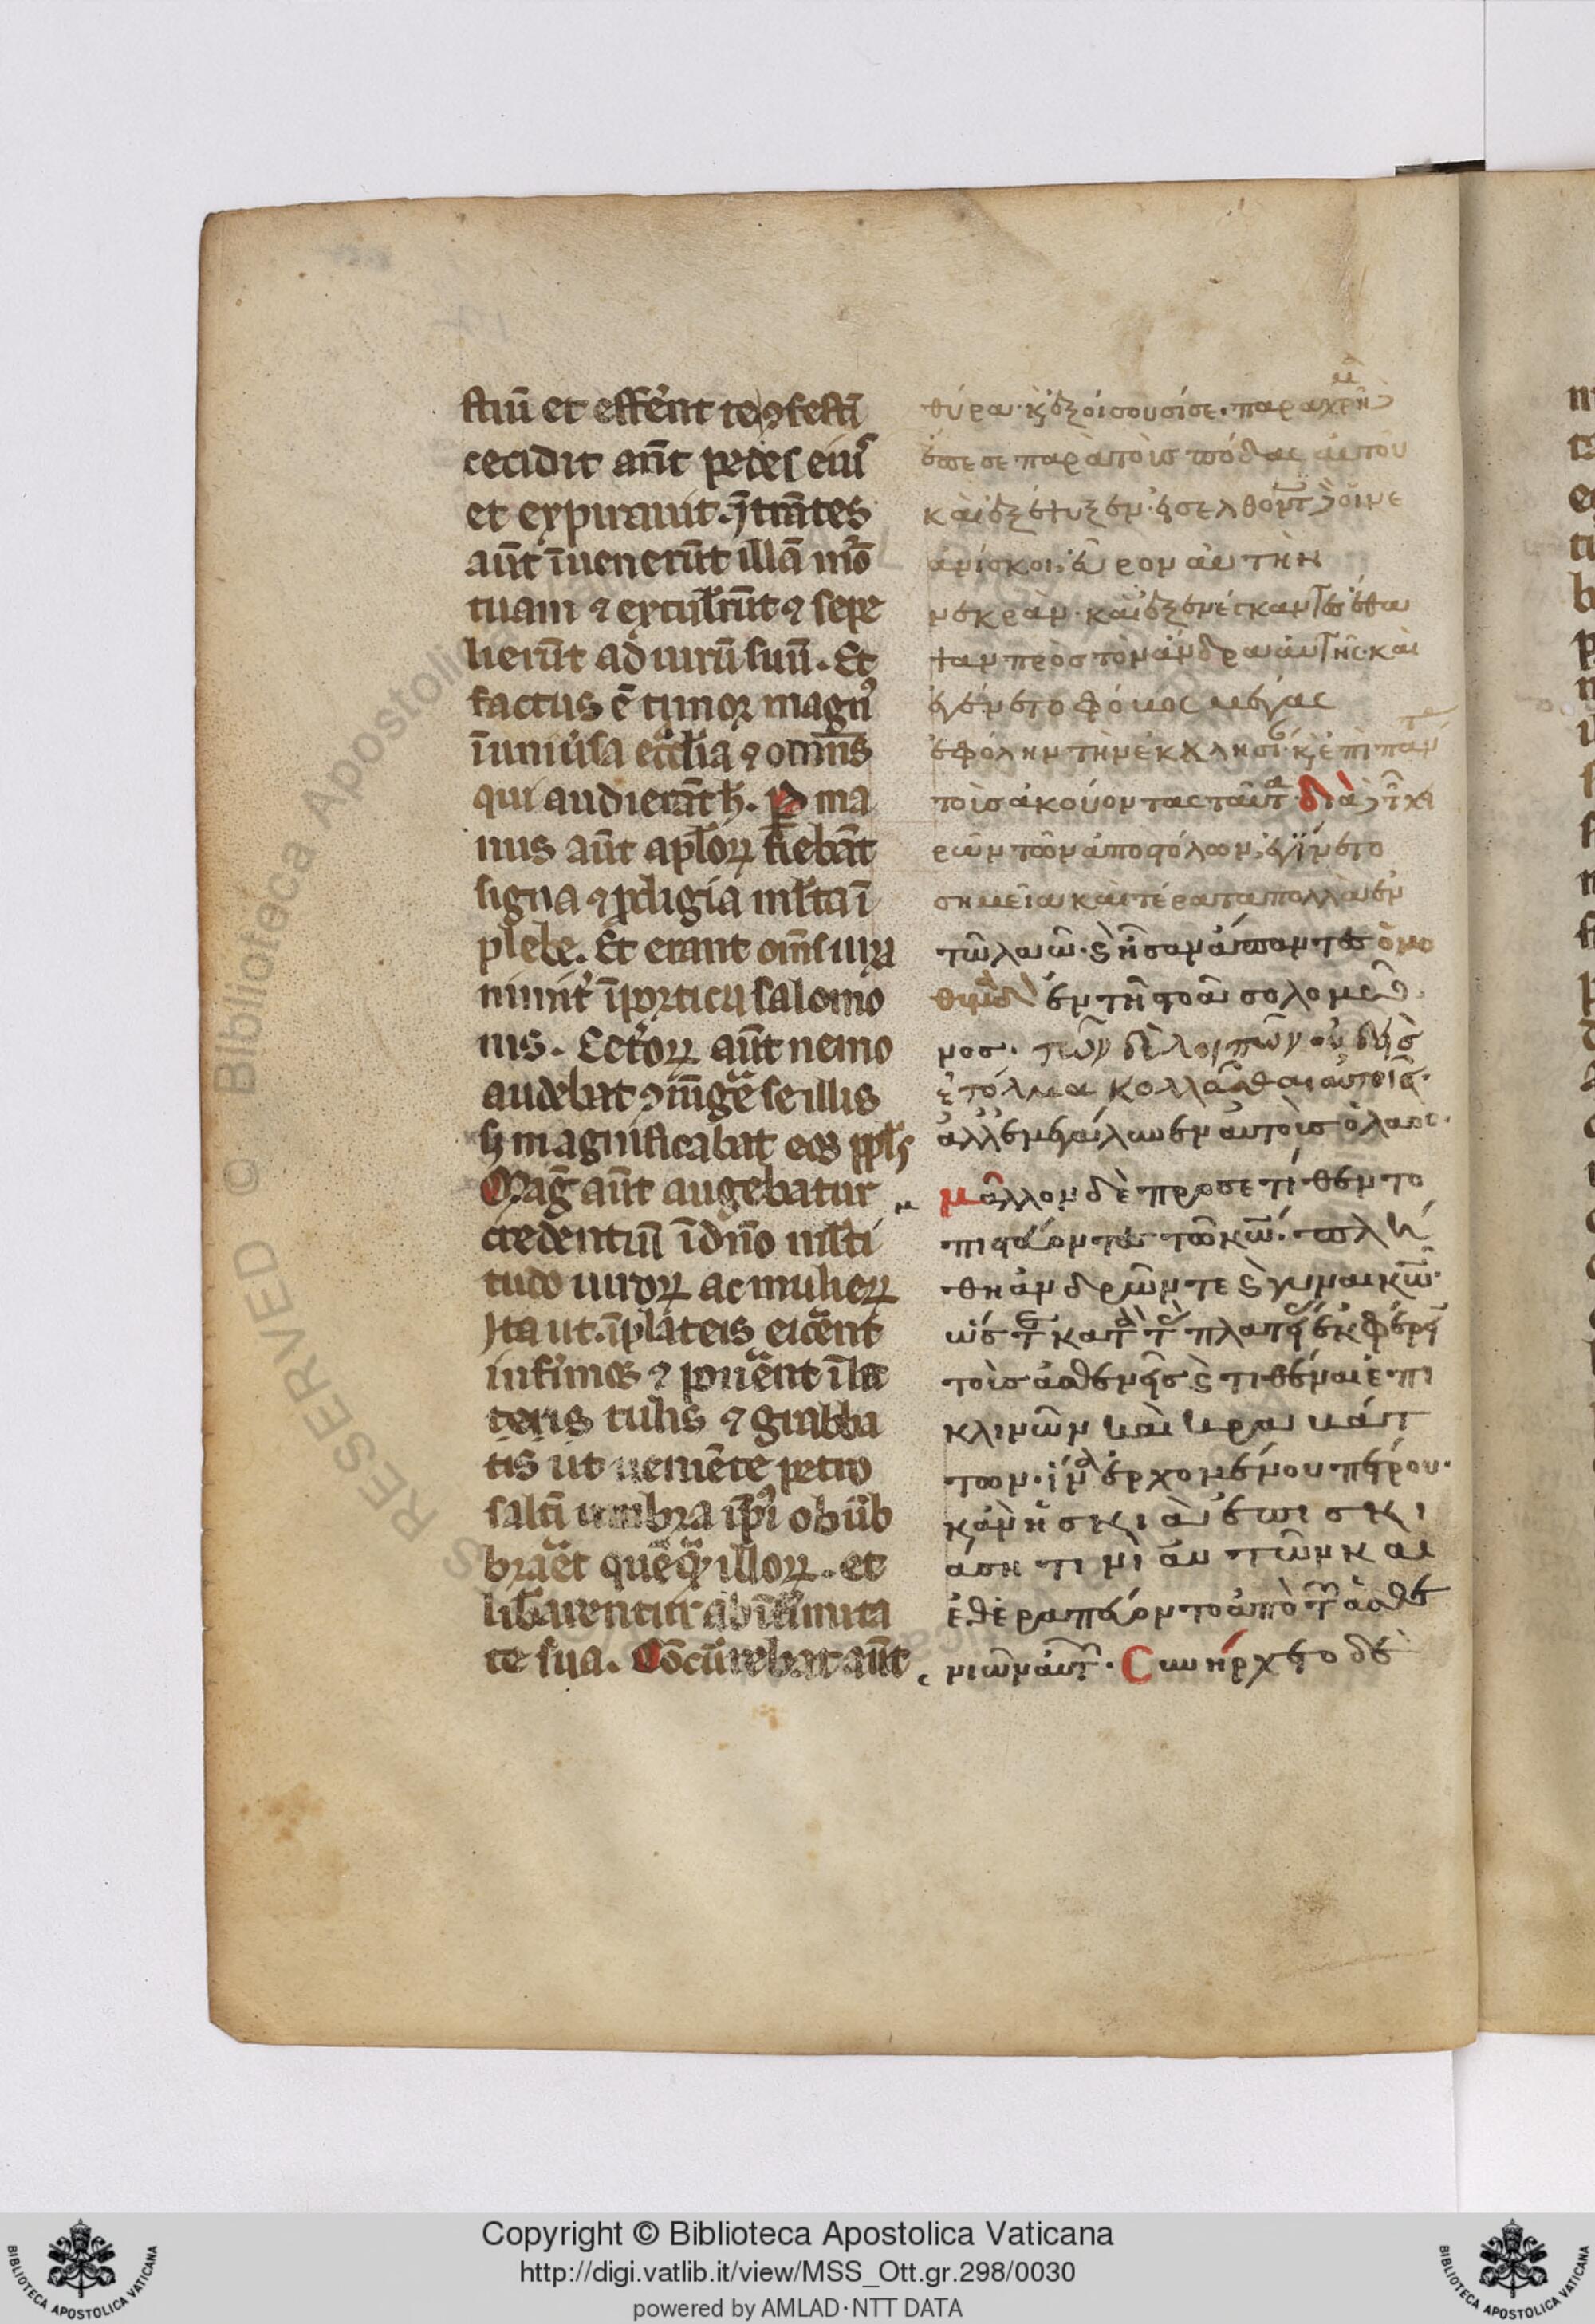 stiū et effer̄nt te ꝯfestī
cecidit aūt pedes eiꝰ
et expirauit. ītrātes
aūt īuenerūt illā mor
tuam ⁊ extulerūt ⁊ sepe
lierūt ad uirū suū. Et
factus ē timor magnꝰ
ī uniūsa ecclīa ⁊ omn̄s
qui audierāt h̄. ꝑ ma
nus aūt apl̄oꝝ fiebāt
signa ⁊ ꝓdigia ml̄ta ī
plebe. Et erant om̄s una
nimit̄ ī porticu salomo
nis. Cet̄oꝝ aūt nemo
audebat ꝯiūgē se illis
s; magnificabat eos ppl̄s
Maḡ aūt augebatur
credentiū ī dn̄o ml̄ti
tudo uiroꝝ ac mulieꝝ
Ita ut ī plateis eicēnt
infirmos ⁊ ponēnt ī lec
tulis ⁊ grabba
tis ut ueniēte petro
saltī umbra ipīꝰ obūb
braēt quēq̄ illoꝝ. et
lib̄arentur ab īfirmita
te sua. Cōcūrebat aūt
θύρα· κ ἐξοίσουσί σε. παραχρῆμ
ἔπεσε παρὰ τοὺς πόδας αὐτοῦ
καὶ ἐξέψυξεν· εἰσελθόντ οἱ νε
ανίσκοι· εὗρον αὐτὴν
νεκρὰν· καὶ ἐξενέγκαντ ἔθα
ψαν πρὸς τὸν ἄνδρα αὐτῆς· καὶ
ἐγένετο φόβος μέγας
ἐφ ὅλην τὴν ἐκκλησί κ ἐπὶ παν
τοὺς ἀκούοντας ταῦτα· διὰ τ χει
ρῶν τῶν ἀποστόλων· ἐγίνετο
σημεῖα καὶ τέρατα πολλὰ ἐν
τῷ λαῷ· κ ἦσαν ἅπαντες ὁμο
θυμαδ ἐν τῇ στοᾷ σολομῶ
νος. τῶν δὲ λοιπῶν οὐδεὶς
ἐτόλμα κολλᾶσθαι αὐτοῖς·
ἀλλ ἐμεγάλυνεν αὐτοὺς ὁ λαός·
μᾶλλον δὲ προσετίθεντο
πιστεύοντες τῷ κω. πλή
θη ἀνδρῶν τε κ γυναικῶ·
ὥστε κατὰ τ πλατεί ἐκφέρει
τοὺς ἀσθενεῖς κ τιθέναι ἐπὶ
κλινῶν καὶ κραβάτ
των· ἵνα ἐρχομένου πέτρου·
κἂν ἡ σκιὰ ἐπισκι
άσῃ τινὶ αὐτῶν καὶ
ἐθεραπεύοντο ἀπὸ τ ἀσθε
νιῶν αὐτ· Συνήρχετο δὲ
Copyright © Biblioteca Apostolica Vaticana
http://digi.vatlib.it/view/MSS_Ott.gr.298/0030
powered by AMLAD·NTT DATA